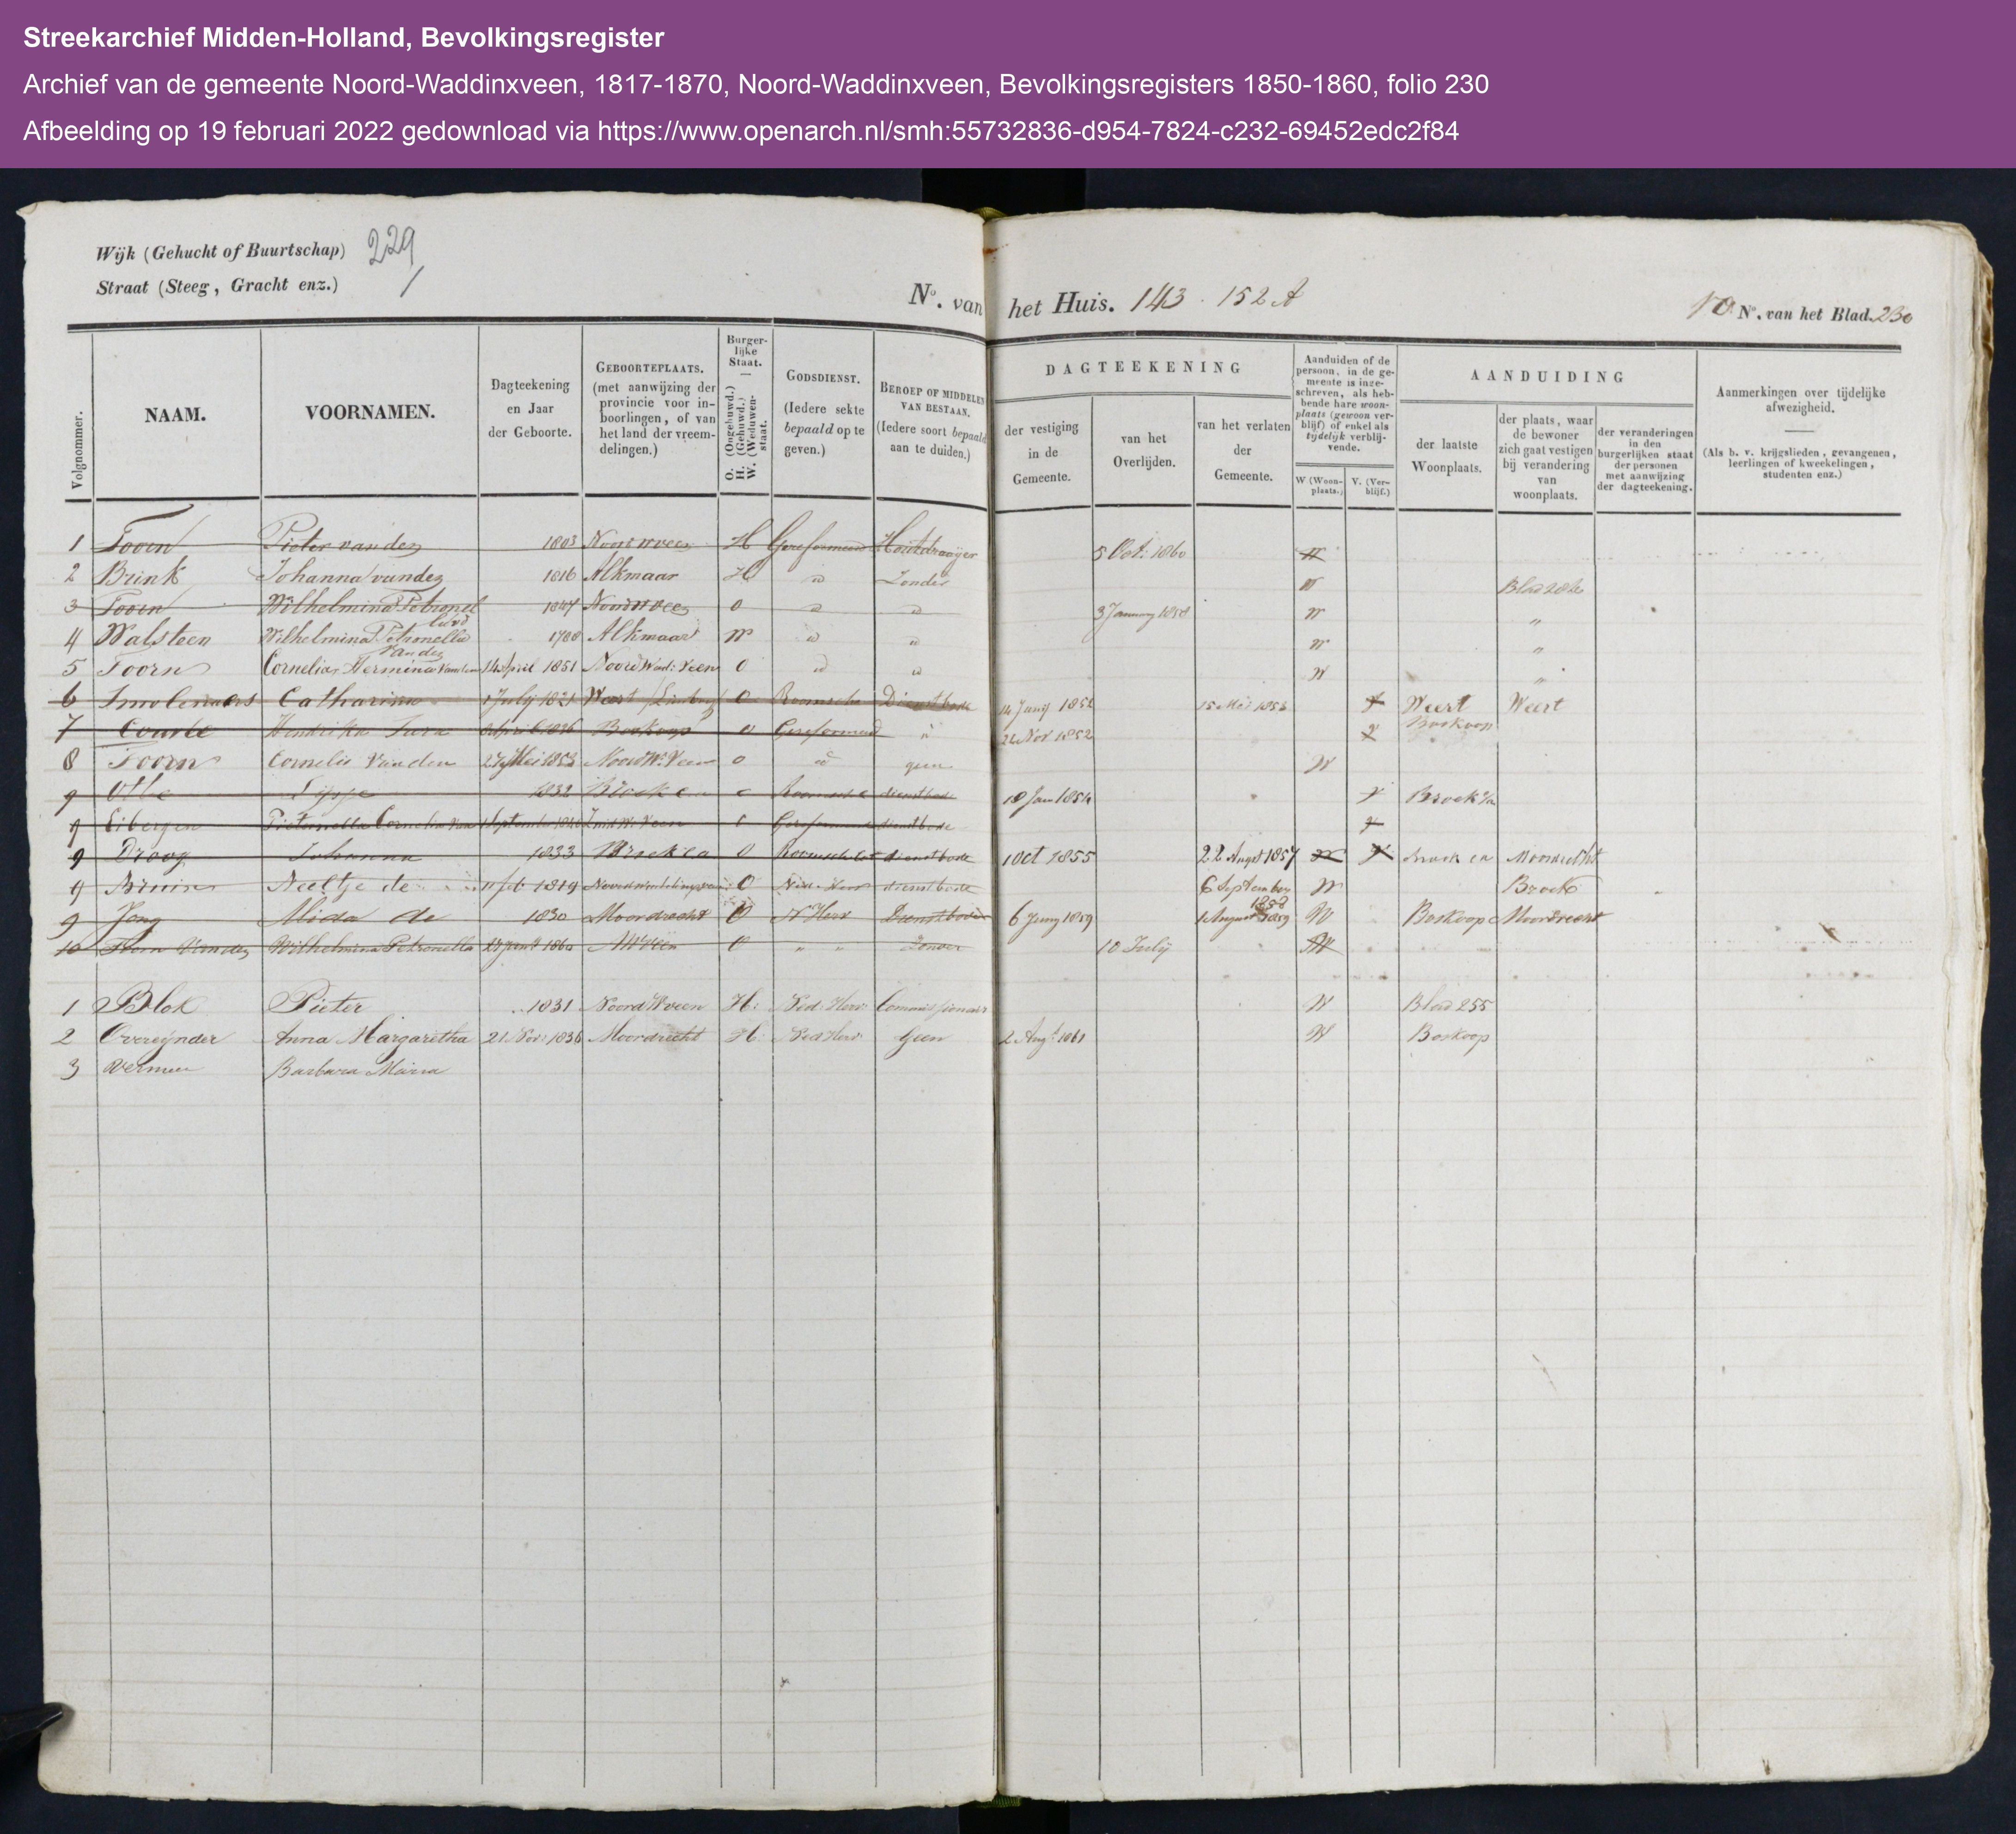 Streekarchief Midden-Holland, Bevolkingsregister
Archief van de gemeente Noord-Waddinxveen, 1817-1870, Noord-Waddinxveen, Bevolkingsregisters 1850-1860, folio 230
Afbeelding op 19 februari 2022 gedownload via https://www.openarch.nl/smh:55732836-d954-7824-c232-69452edc2f84
Wijk (Gehucht of Buurtschap) 229
Straat (Steeg, Gracht enz.)
No. van het Huis. 143 152 A
No. van het Blad. 230
Volgnommer.
NAAM.
VOORNAMEN.
Dagteekening
en Jaar
der Geboorte.
GEBOORTEPLAATS.
(met aanwijzing der
provincie voor in-
boorlingen, of van
het land der vreem-
delingen.)
Burger-
lijke
Staat.
O. (Ongehuwd.)
H. (Gehuwd.)
W. (Weduwen-
staat.
GODSDIENST.
(Iedere sekte
bepaald op te
geven.)
BEROEP OF MIDDELEN
VAN BESTAAN.
(Iedere soort bepaald
aan te duiden.)
DAGTEEKENING
der vestiging
in de
Gemeente.
van het
Overlijden.
van het verlaten
der
Gemeente.
Aanduiden of de
persoon, in de ge-
meente is inge-
schreven, als heb-
bende hare woon-
plaats (gewoon ver-
blijf) of enkel als
tijdelijk verblij-
vende.
W (Woon-
plaats.)
V. (Ver-
blijf.)
AANDUIDING
der laatste
Woonplaats.
der plaats, waar
de bewoner
zich gaat vestigen
bij verandering
van
woonplaats.
der veranderingen
in den
burgerlijken staat
der personen
met aanwijzing
der dagteekening.
Aanmerkingen over tijdelijke
afwezigheid.
(Als b. v. krijgslieden, gevangenen,
leerlingen of kweekelingen,
studenten enz.)
1 Toorn Pieter van den 1803 H Gereformeerd Houtdraaijer 5 Oct. 1860 W
2 Brink Johanna van den 1816 Alkmaar H id Zonder W
3 Toorn Wilhelmina Petronel 1847 O id id 3 January 1858 W
4 Walsteen Wilhelmina Petronella 1788 Alkmaar W id id W
5 Toorn Cornelia Hermina van den 14 April 1851 O id id W
6 Catharina 1 July 1821 Weert O Roomsch Dienstbode 14 Junij 1852 15 Mei 1853 V Weert Weert
7 Hendrika Boskoop O Gereformeerd 22 Nov 1852 V Boskoop
8 Toorn Cornelis van den 27 Mei 1853 O id geen W
9 1832 dienstbode 18 Jan 1854 V
9 Eibergen Pietronella Cornelia van dienstbode
9 Droog Johanna 1833 O dienstbode 1 Oct 1855 22 Augst 1857 Moordrecht
9 Bruin Neeltje de 11 feb 1819 O Ned. Herv dienstbode 6 September 1858 W Broek
9 Jong Alida de 1830 Moordrecht O N Herv Dienstbode 6 Juny 1859 1 August 1859 W Boskoop Moordrecht
10 Toorn van den Wilhelmina Petronella O " " Zonder 10 July W
1 Blok Pieter 1831 H. Ned. Herv. Commissionair W Blad 255
2 Overeijnder Anna Margaretha 21 Nov. 1836 Moordrecht H. Ned Herv. Geen 2 Aug. 1861 W Boskoop
3 Barbara Maria